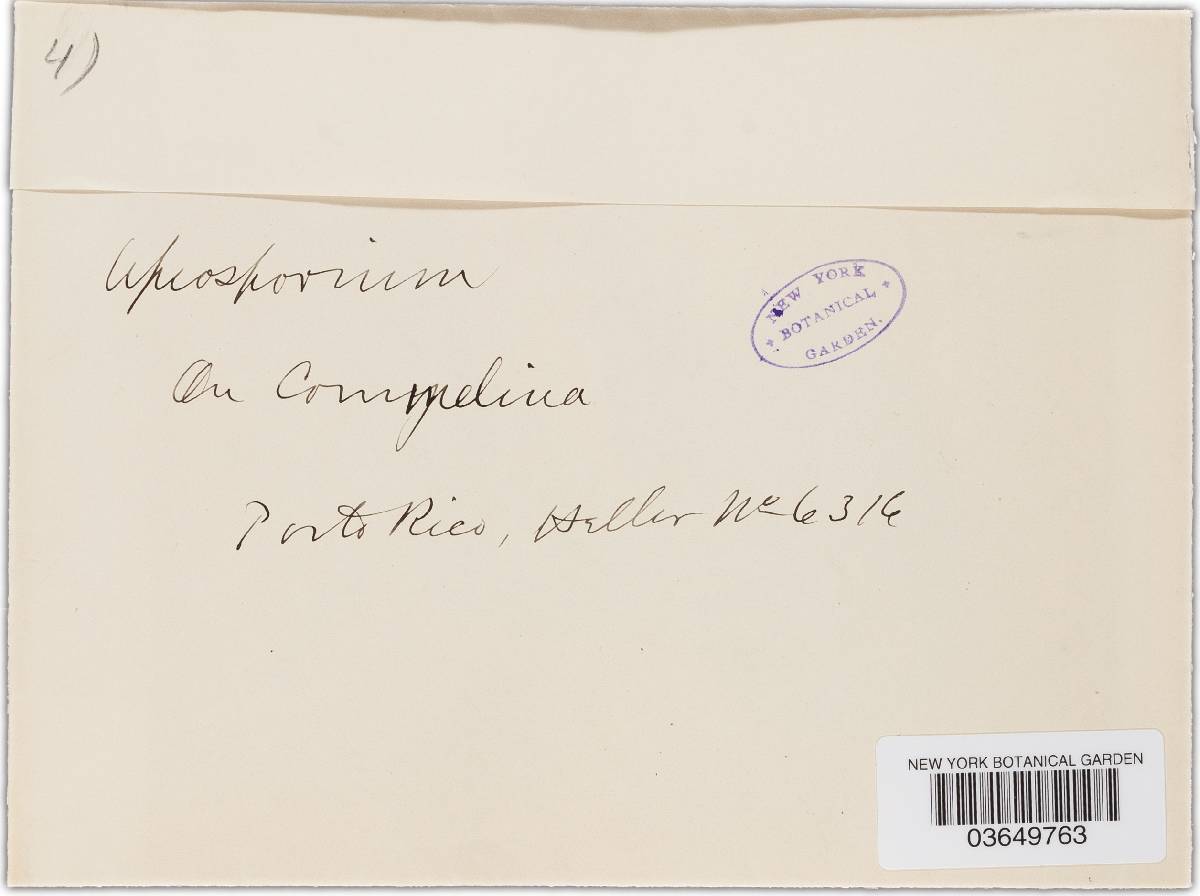 4)
Apiosporium
NEW YORK
BOTANICAL
GARDEN.
On Commelina
Porto Rico, Heller No 6316
NEW YORK BOTANICAL GARDEN
03649763